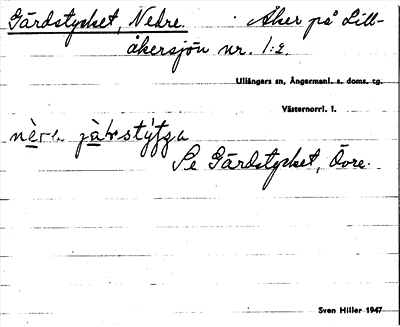 Gärdstycket, Nedre. Åker på Lill-
åkersjön nr. 1:2.
Ullångers sn, Ångermanl. s. doms. tg.
Västernorrl. l.
Se Gärdstycket, Övre.
Sven Hiller 1947